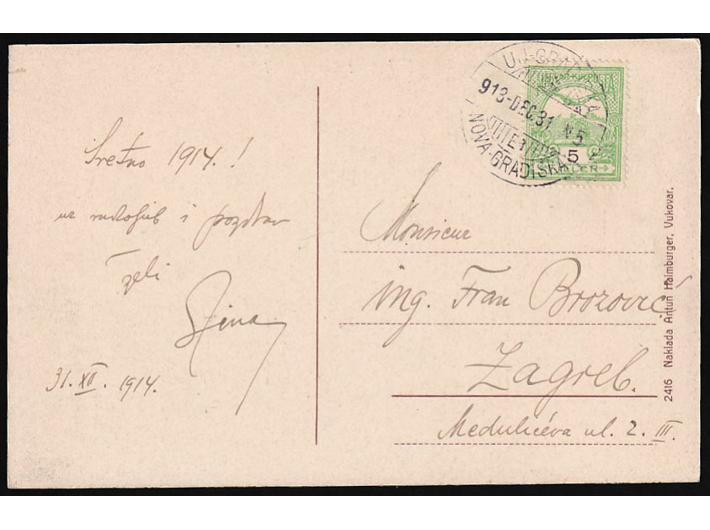 Sretno 1914.!
uz rukoljub i pozdrav
želi
31. XII. 1914.
UJ-GRADISKA
913-DEC.31 N5
NOVA-GRADIŠKA
5
Monsieur
ing. Fran Brozović
Zagreb.
Medulićeva ul. 2. III.
2416 Naklada Antun Haimburger, Vukovar.